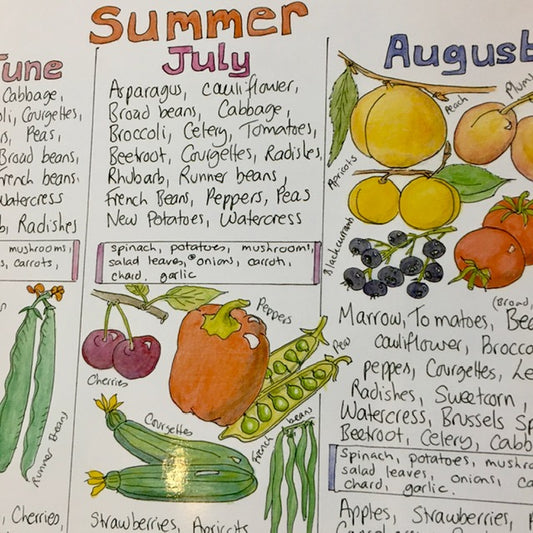 Summer
June
Cabbage,
Courgettes,
Peas,
Broad beans,
French beans.
Watercress
Radishes
mushrooms,
carrots,
Runner Beans
Cherries,
July
Asparagus, cauliflower,
Broad beans, Cabbage,
Broccoli, Celery, Tomatoes,
Beetroot, Courgettes, Radishes,
Rhubarb, Runner beans,
French Beans, Peppers, Peas
New Potatoes, Watercress
spinach, potatoes, mushroom,
salad leaves, onions, carroth,
chard. garlic
Cherries
Peppers
Peas
Courgettes
French beans
Strawberries, Apricots
August
Peach
Plum
Apricots
Blackcurrants
(Broad,
Marrow, Tomatoes,
cauliflower,
peppers, Courgettes,
Radishes, Sweetcorn
Watercress, Brussels
Beetroot, Celery,
Spinach, potatoes,
salad leaves, onions,
chard, garlic.
Apples, Strawberries,